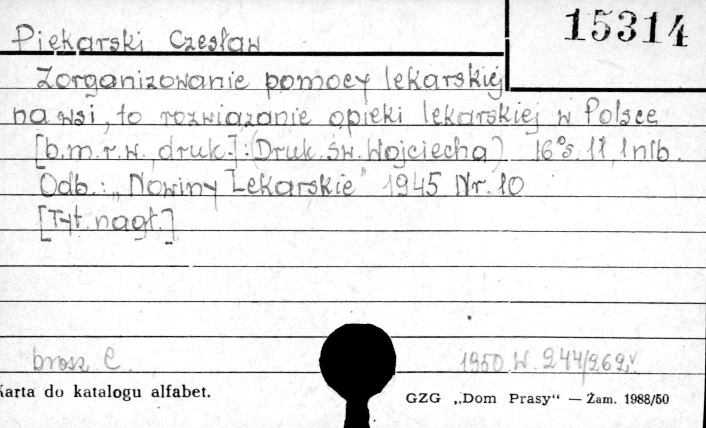 15314
Piekarski Czesław
Zorganizowanie pomocy lekarskiej
na wsi, to rozwiązanie opieki lekarskiej w Polsce
[b.m.r.w., druk.]: (Druk. św. Wojciecha) 16°s. 11, 1 nlb.
Odb.: „Nowiny Lekarskie" 1945 Nr. 10
[Tyt. nagł.]
brosz. C. 1950 W. 244/262
Karta do katalogu alfabet.
GZG „Dom Prasy“ — Zam. 1988/50